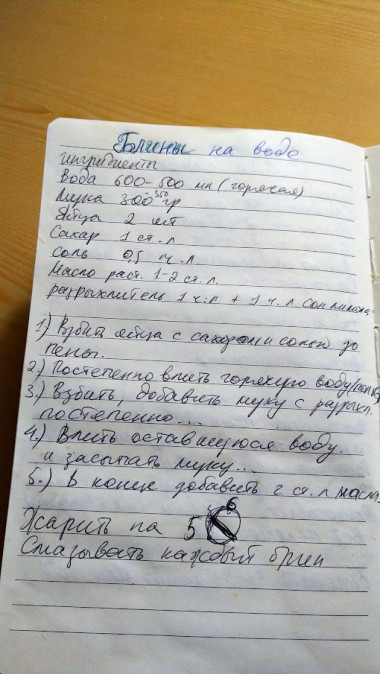 Блины на воде
ингредиенты
Вода 600-500 мл (горячая)
Мука 300-350 гр
Яйца 2 шт
Сахар 1 ст. л
соль 0,5 ч. л
Масло раст. 1-2 ст. л.
разрыхлитель 1 ч. л + 1 ч. л сок лимона
1.) Взбить яйца с сахаром и солью до
пены.
2.) Постепенно влить горячую воду
3.) Взбить, добавить муку с разрыхл.
постепенно...
4.) Влить оставшуюся воду.
и засыпать муку...
5.) В конце добавить 2 ст. л масла
Жарить на 5
Смазывать каждый блин